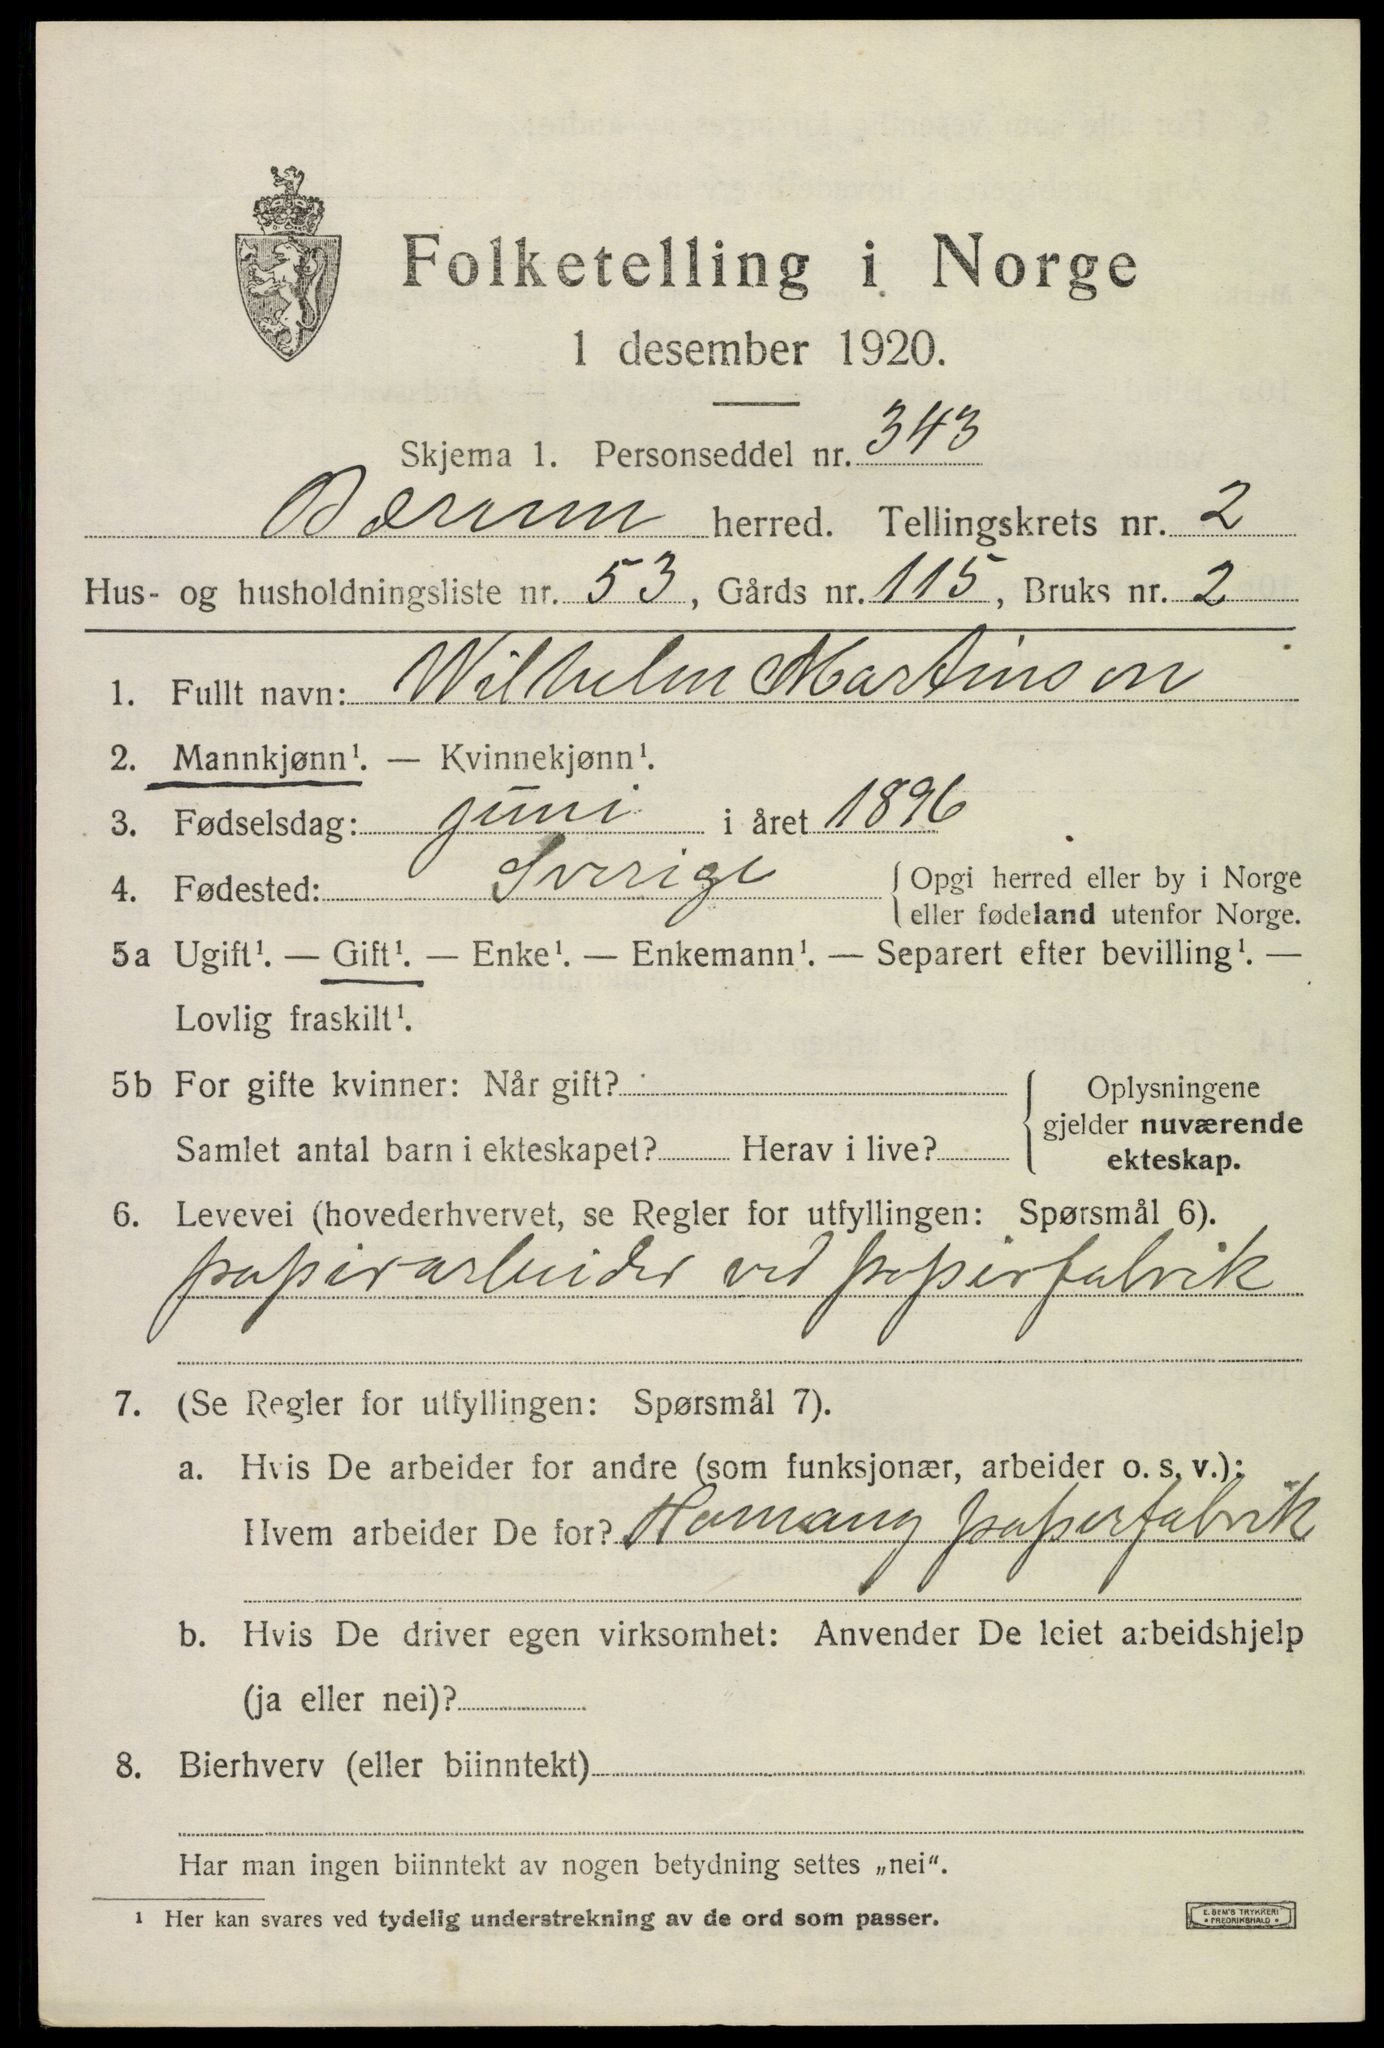 Folketelling i Norge
1 desember 1920.
Skjema 1. Personseddel nr. 343
Bærum herred. Tellingskrets nr. 2
Hus- og husholdningsliste nr. 53, Gårds nr. 115, Bruks nr. 2
1. Fullt navn: Wilhelm Martinson
2. Mannkjønn¹. — Kvinnekjønn¹.
3. Fødselsdag: juni i året 1896
4. Fødested: Sverige { Opgi herred eller by i Norge
eller fødeland utenfor Norge.
5a Ugift¹. — Gift¹. — Enke¹. — Enkemann¹. — Separert efter bevilling¹. —
Lovlig fraskilt¹.
5b For gifte kvinner: Når gift? { Oplysningene
gjelder nuværende
Samlet antal barn i ekteskapet? Herav i live? ekteskap.
6. Levevei (hovederhvervet, se Regler for utfyllingen: Spørsmål 6).
papirarbeider ved papirfabrik
7. (Se Regler for utfyllingen: Spørsmål 7).
a. Hvis De arbeider for andre (som funksjonær, arbeider o. s. v.):
Hvem arbeider De for? Hamang papirfabrik
b. Hvis De driver egen virksomhet: Anvender De leiet arbeidshjelp
(ja eller nei)?
8. Bierhverv (eller biinntekt)
Har man ingen biinntekt av nogen betydning settes „nei“.
¹ Her kan svares ved tydelig understrekning av de ord som passer.
E. SEM'S TRYKKERI
• FREDRIKSHALD •